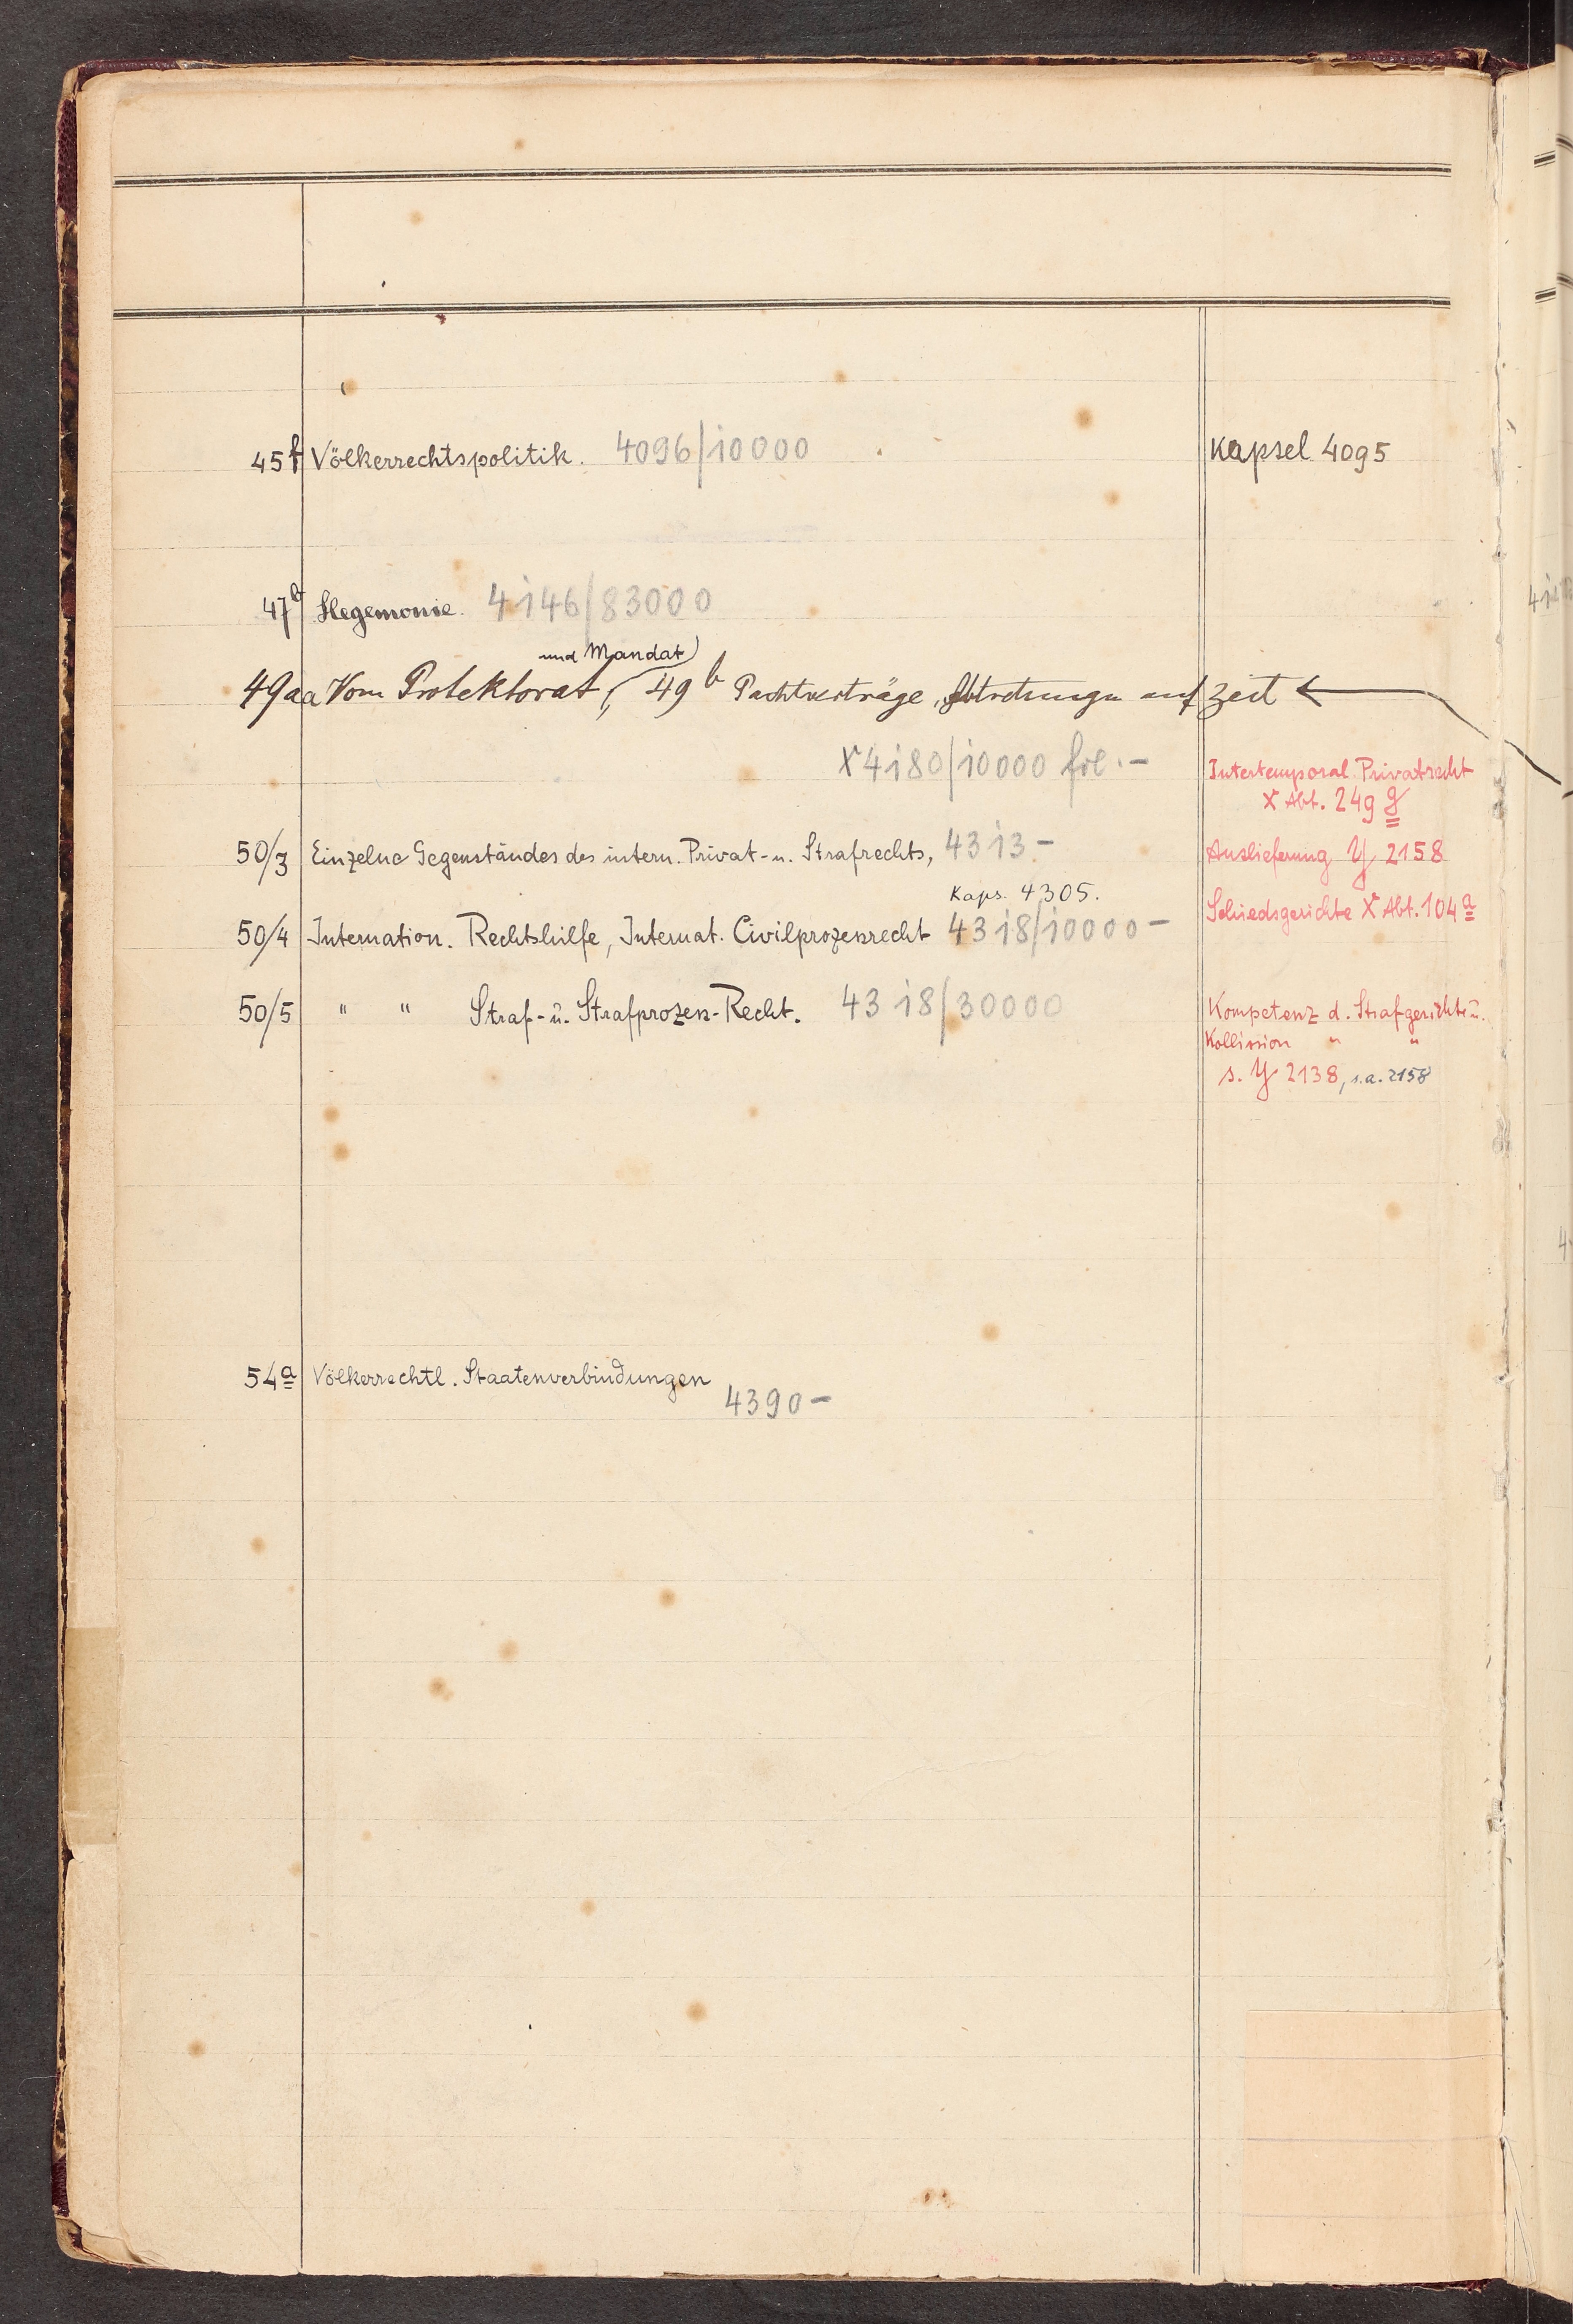 45f Völkerrechtspolitik. 4096/10000 Kapsel 4095
47b Hegemonie. 4146/83000
und Mandat)
49aa Vom Protektorat, 49b Pachtverträge, Abtretungen auf Zeit
X 4180/10000 fol.-
Intertemporal. Privatrecht
X Abt. 249 g
50/3 Einzelne Gegenständes des intern. Privat- u. Strafrechts, 4313- Auslieferung Y 2158
Kaps. 4305.
50/4 Internation. Rechtshilfe, Internat. Civilprozessrecht 4318/10000- Schiedsgerichte X Abt. 104a
50/5 " " Straf- u. Strafprozess-Recht. 4318/30000 Kompetenz d. Strafgerichte u.
Kollission " "
s. Y 2138, s.a. 2158
54a Völkerrechtl. Staatenverbindungen
4390-